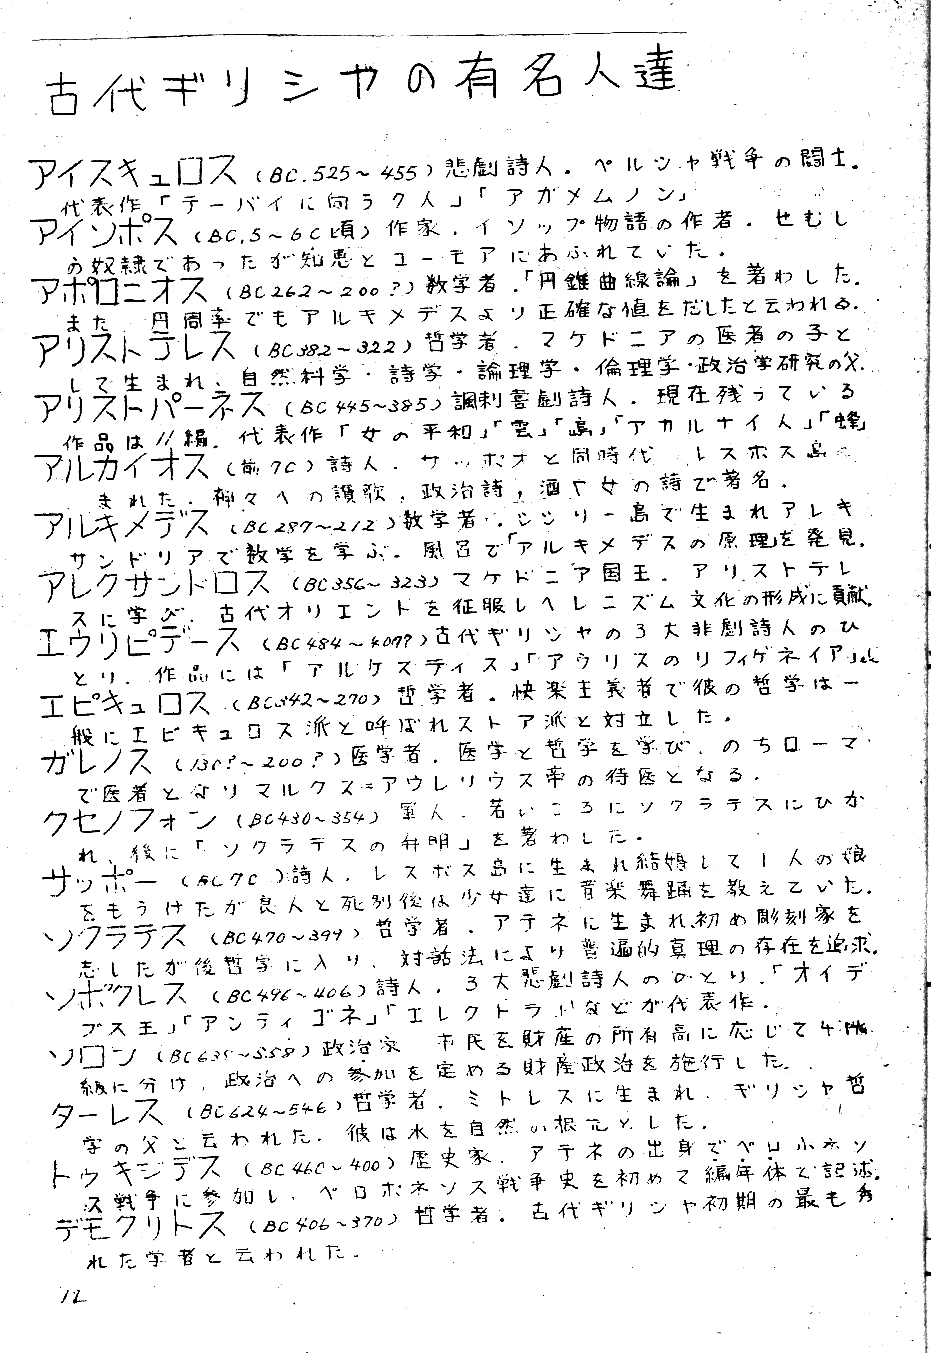 古代ギリシヤの有名人達
アイスキュロス (BC.525~455)悲劇詩人．ペルシャ戦争の闘士．
代表作「テーバイに向う7人」「アガメムノン」
アイソポス (BC.5~6C頃) 作家．イソップ物語の作者．せむし
の奴隷であったが知恵とユーモアにあふれていた．
アポロニオス (BC262~200?)数学者．「円錐曲線論」を著わした．
また、円周率でもアルキメデスより正確な値をだしたと云われる．
アリストテレス (BC382~322) 哲学者．マケドニアの医者の子と
して生まれ、自然科学・詩学・論理学・倫理学・政治学研究の父．
アリストパーネス (BC445~385)諷刺喜劇詩人．現在残っている
作品は11編．代表作「女の平和」「雲」「鳥」「アカルナイ人」「蜂」
アルカイオス (前7C) 詩人．サッポオと同時代 レスボス島
まれた．神々への讃歌，政治詩，酒や女の詩で著名．
アルキメデス (BC287~212)数学者．シシリー島で生まれアレキ
サンドリアで数学を学ぶ．風呂で「アルキメデスの原理」を発見．
アレクサンドロス (BC356~323)マケドニア国王．アリストテレ
スに学び、古代オリエントを征服しヘレニズム文化の形成に貢献．
エウリピデース (BC484~407?)古代ギリシャの3大非劇詩人のひ
とり．作品には「アルケスティス」「アウリスのリフィゲネイア」
エピキュロス (BC342~270) 哲学者．快楽主義者で彼の哲学は一
般にエピキュロス派と呼ばれストア派と対立した．
ガレノス (130?~200?)医学者．医学と哲学を学び、のちローマ
で医者となりマルクス=アウレリウス帝の侍医となる．
クセノフォン (BC430~354) 軍人．若いころにソクラテスにひか
れ、後に「ソクラテスの弁明」を著わした．
サッポー (BC7C)詩人．レスボス島に生まれ結婚して1人の娘
をもうけたが良人と死別後は少女達に音楽舞踊を教えていた．
ソクラテス (BC470~399) 哲学者．アテネに生まれ初め彫刻家を
志したが後哲学に入り、対話法により普遍的真理の存在を追求．
ソポクレス (BC496~406)詩人．3大悲劇詩人のひとり．「オイデ
プス王」「アンティゴネ」「エレクトラ」などが代表作．
ソロン (BC635~558)政治家 市民を財産の所有高に応じて4階
級に分け、政治への参加を定める財産政治を施行した．
ターレス (BC624~546)哲学者．ミトレスに生まれ、ギリシャ哲
学の父と云われた．彼は水を自然の根元とした．
トゥキジデス (BC460~400) 歴史家．アテネの出身でペロポネソ
ス戦争に参加し、ペロポネソス戦争史を初めて編年体で記述．
デモクリトス (BC406~370) 哲学者．古代ギリシャ初期の最も秀
れた学者と云われた．
12